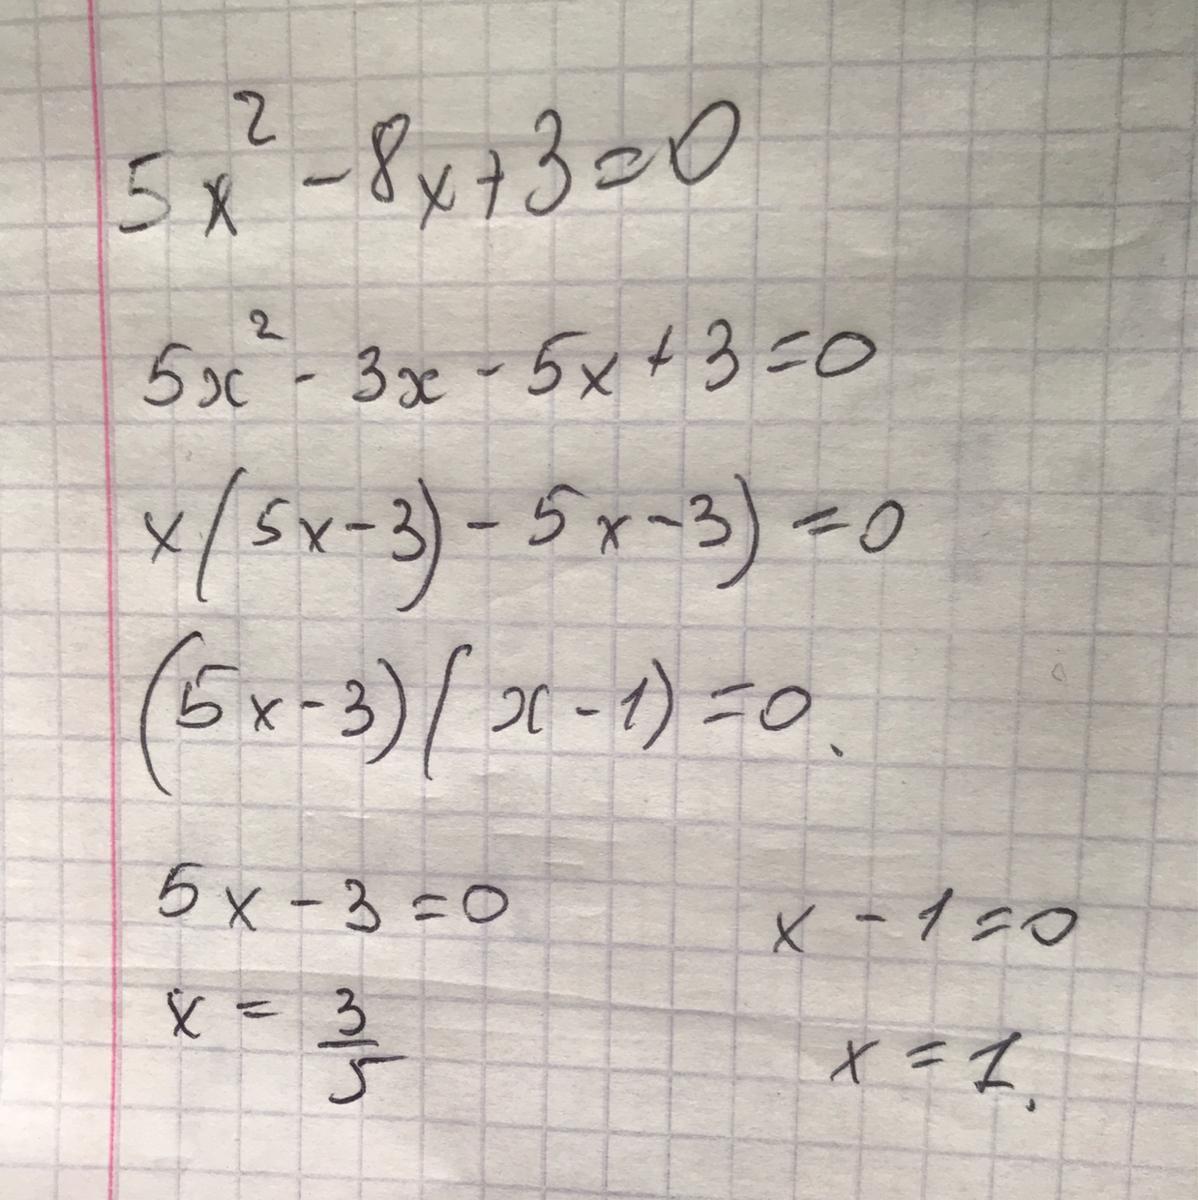 5x² - 8x + 3 = 0
5x² - 3x - 5x + 3 = 0
x(5x - 3) - 5x - 3) = 0
(5x - 3)(x - 1) = 0.
5x - 3 = 0 x - 1 = 0
x = 3/5 x = 1.